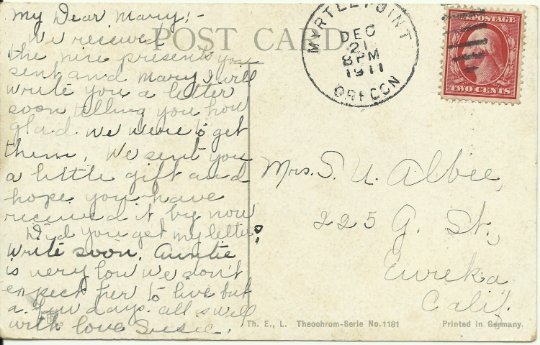 My Dear Mary:-
We received
the nice presents you
sent and Mary I will
write you a letter
soon telling you how
glad we were to get
them. We sent you
a little gift and
hope you have
received it by now
Did you get my letter?
Write soon. Auntie
is very low we don't
expect her to live but
a few days. all well
with love Susie.
POST CARD
MYRTLE POINT
DEC
21
8PM
1911
OREGON
U.S. POSTAGE
TWO CENTS
Mrs. S. U. Albee,
225 G. St,
Eureka
Calif.
Th. E., L. Theochrom-Serie No. 1181 Printed in Germany.